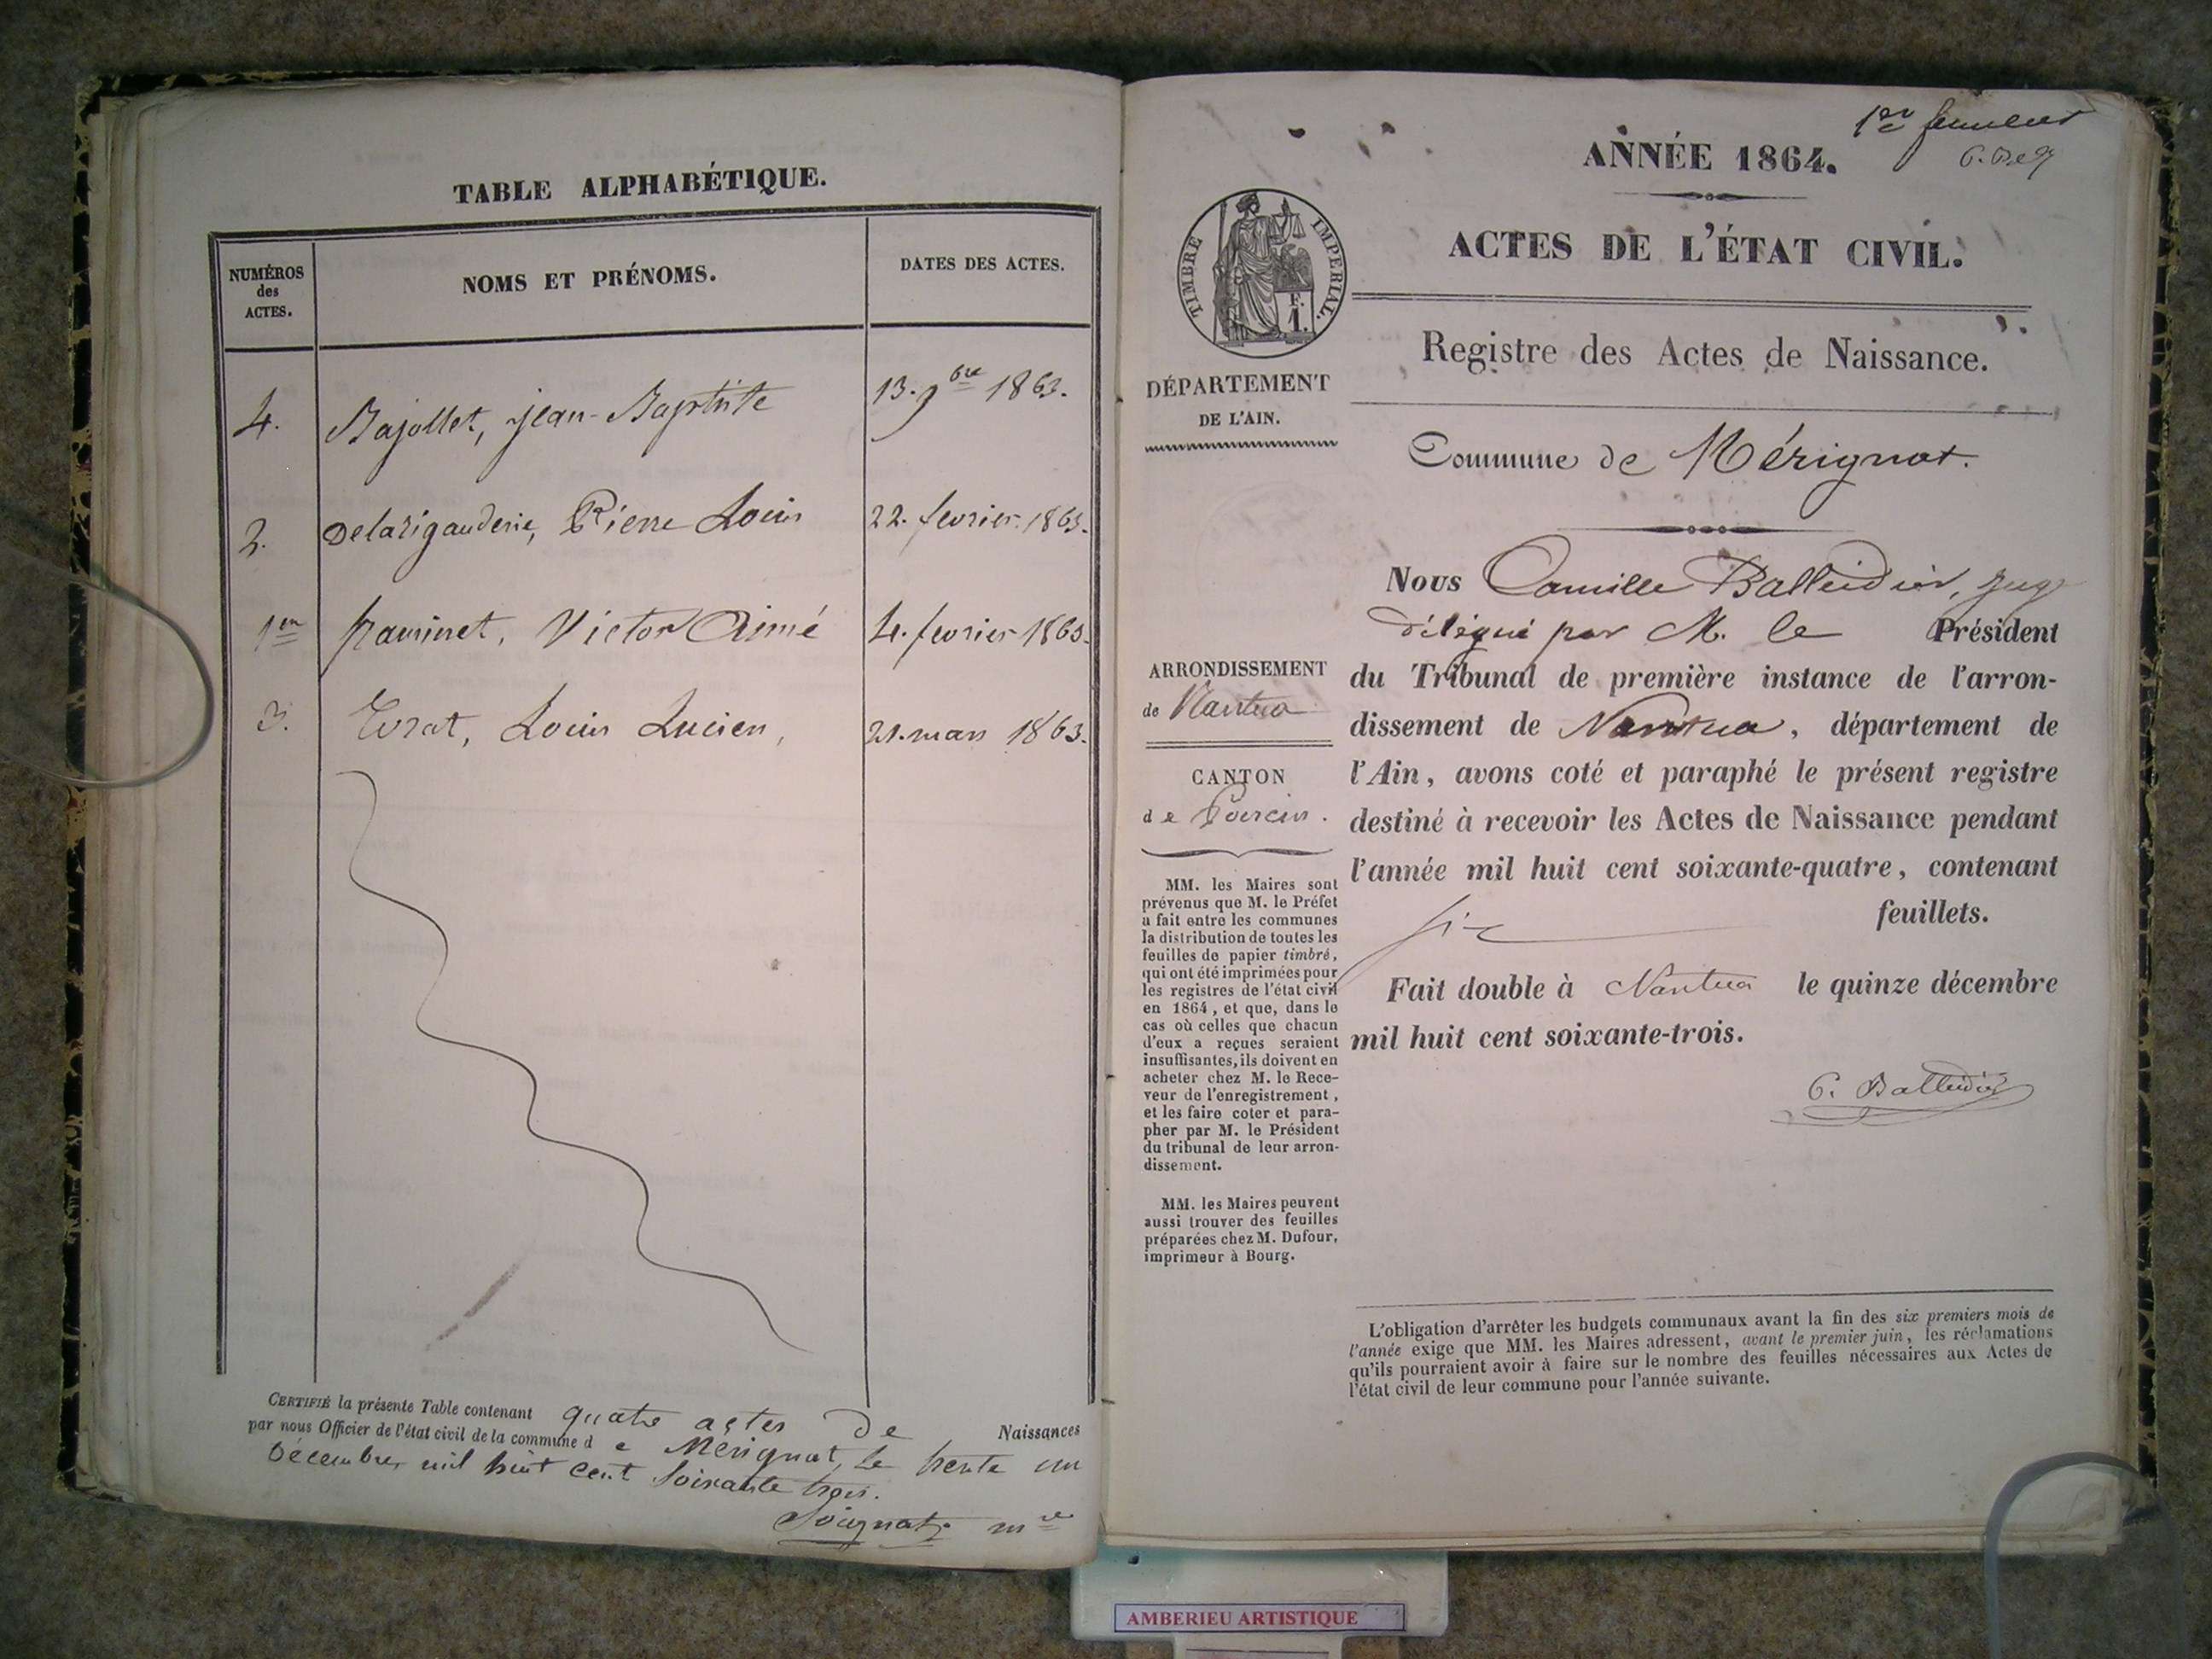 TABLE ALPHABÉTIQUE.
NUMÉROS
des
ACTES.
NOMS ET PRÉNOMS.
DATES DES ACTES.
4. Bajollet, Jean-Baptiste 13. 9bre 1863.
2. Delarigauderie, Pierre Louis 22. fevrier. 1863.
1er Raminet, Victor Aimé 4. fevrier 1863.
3. Evrat, Louis Lucien, 21. mars 1863.
CERTIFIÉ la présente Table contenant quatre actes de Naissances
par nous Officier de l'état civil de la commune de Mérignat, le trente un
Décembre mil huit cent soixante trois.
mre
1er feuillet
ANNÉE 1864.
ACTES DE L'ÉTAT CIVIL.
TIMBRE IMPERIAL.
F.
1.
Registre des Actes de Naissance.
DÉPARTEMENT
DE L'AIN.
Commune de Mérignat.
Nous Camille Balleidier, juge
délégué par M. le Président
du Tribunal de première instance de l'arron-
dissement de Nantua, département de
l'Ain, avons coté et paraphé le présent registre
destiné à recevoir les Actes de Naissance pendant
l'année mil huit cent soixante-quatre, contenant
six feuillets.
Fait double à Nantua le quinze décembre
mil huit cent soixante-trois.
C. Balleidier
ARRONDISSEMENT
de Nantua
CANTON
de Poncin.
MM. les Maires sont
prévenus que M. le Préfet
a fait entre les communes
la distribution de toutes les
feuilles de papier timbré,
qui ont été imprimées pour
les registres de l'état civil
en 1864, et que, dans le
cas où celles que chacun
d'eux a reçues seraient
insuffisantes, ils doivent en
acheter chez M. le Rece-
veur de l'enregistrement,
et les faire coter et para-
pher par M. le Président
du tribunal de leur arron-
dissement.
MM. les Maires peuvent
aussi trouver des feuilles
préparées chez M. Dufour,
imprimeur à Bourg.
L'obligation d'arrêter les budgets communaux avant la fin des six premiers mois de
l'année exige que MM. les Maires adressent, avant le premier juin, les réclamations
qu'ils pourraient avoir à faire sur le nombre des feuilles nécessaires aux Actes de
l'état civil de leur commune pour l'année suivante.
AMBERIEU ARTISTIQUE